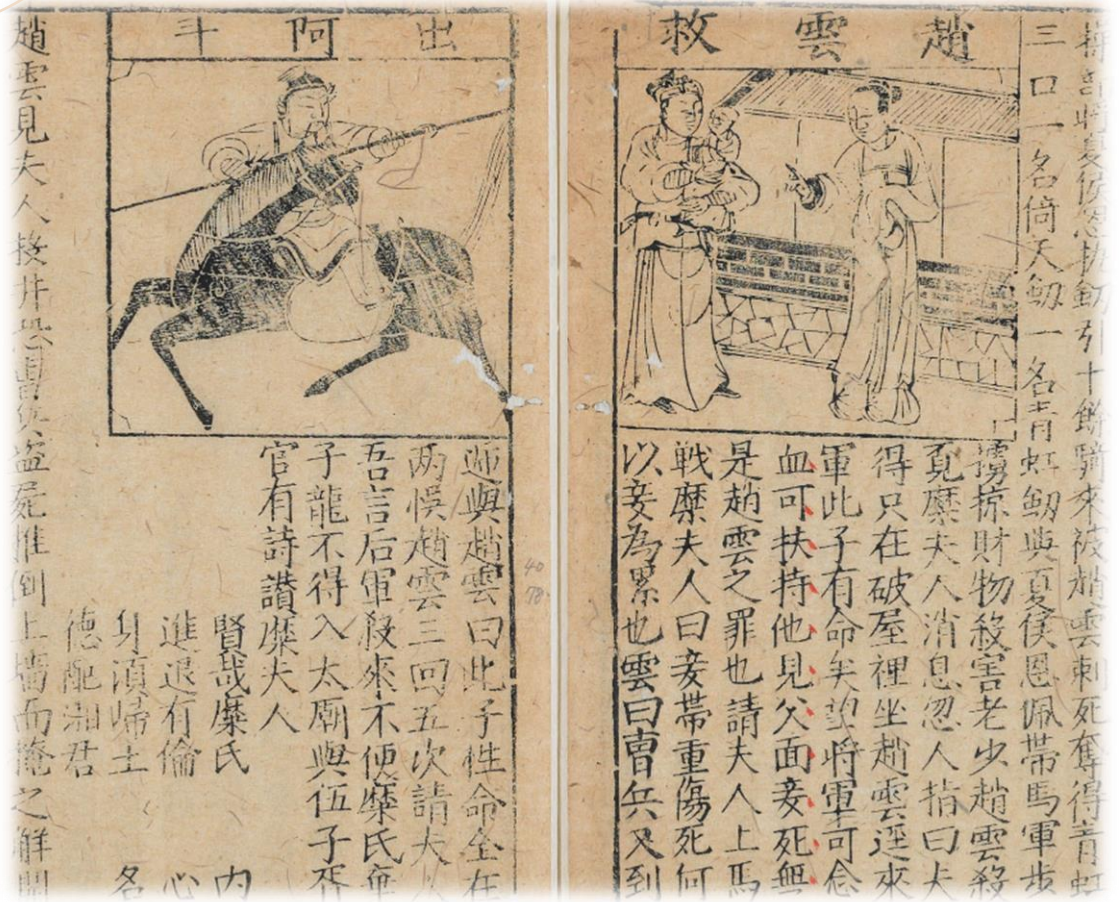 夏侯恩執釼引十餘騎來被趙雲刺死奪得青虹
三口一名倚天釼一名青虹釼與夏侯恩佩帶馬軍步
趙雲救
擄掠財物殺害老少趙雲殺
覓糜夫人消息忽人指曰夫
得只在破屋裡坐趙雲逕來
軍此子有命矣望將軍可念
血可扶持他見父面妾死無
是趙雲之罪也請夫人上馬
戦糜夫人曰妾帶重傷死何
以妾為累也雲曰曺兵又到
出阿斗
逓與趙雲曰此子性命全在
两悞趙雲三回五次請夫人
吾言后軍殺來不便糜氏棄
子龍不得入太廟與伍子胥
官有詩讃糜夫人
賢哉糜氏 內
進退有倫 心
身湏歸土 名
德配湘君
趙雲見夫人投井恐曺兵盗屍推倒土墻而掩之觧開